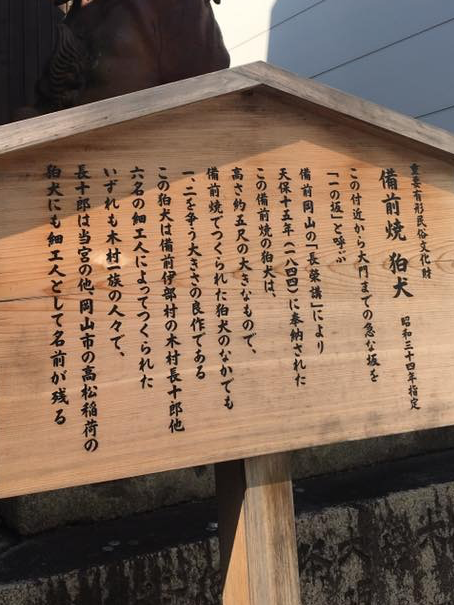 重要有形民俗文化財
備前焼 狛犬 昭和三十四年指定
この付近から大門までの急な坂を
「一の坂」と呼ぶ
備前岡山の「長榮講」により
天保十五年(一八四四)に奉納された
この備前焼の狛犬は、
高さ約五尺の大きなもので、
備前焼でつくられた狛犬のなかでも
一、二を争う大きさの良作である
この狛犬は備前伊部村の木村長十郎他
六名の細工人によってつくられた
いずれも木村一族の人々で、
長十郎は当宮の他、岡山市の高松稲荷の
狛犬にも細工人として名前が残る